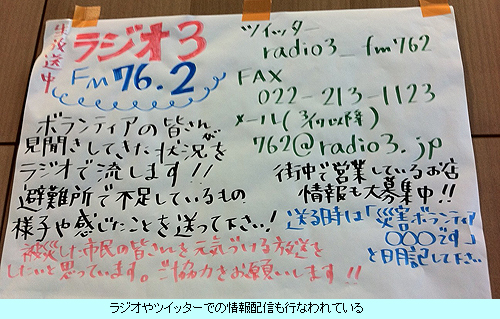 生放送中
ラジオ3
FM 76.2
ツイッター
radio3_fm762
FAX
022-213-1123
メール(3行以降)
762@radio3.jp
ボランティアの皆さんが
見聞きしてきた状況を
ラジオで流します!!
避難所で不足しているもの
様子や感じたことを送って下さい!
街中で営業しているお店
情報も大募集中!!
送る時は「災害ボランティア
○○○です」
と明記して下さい
被災した市民の皆さんを元気づける放送を
したいと思っています。ご協力をお願いします!!
ラジオやツイッターでの情報配信も行なわれている